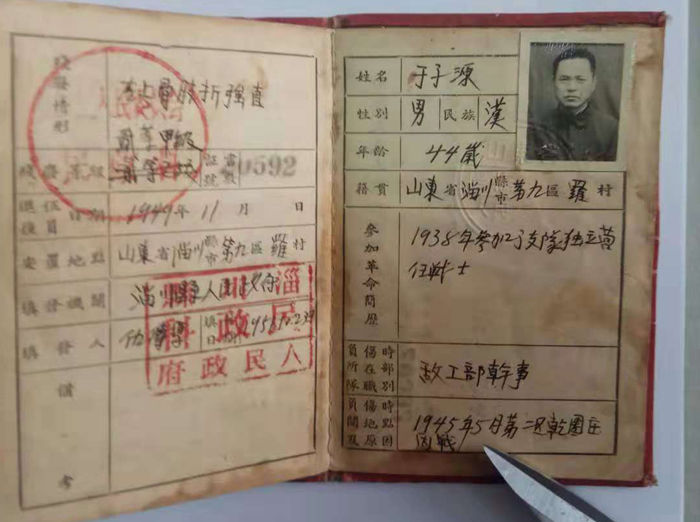 殘廢情形
左上骨肱折强直
貳等甲級
殘廢等級
0592
復員日期 1949年11月 日
安置地點 山東省淄川縣市第九區羅村
填發機關 淄川縣人民政府
填發人
備考
淄川縣
民政科
人民政府
姓名 于子源
性别 男 民族 漢
年龄 44歲
籍貫 山東省淄川縣市第九區羅村
參加革命簡歷
1938年参加了支隊独立营
任战士
負傷時所在部隊職别
敌工部幹事
負傷時間地點及原因
1945年5月第二次
因戰